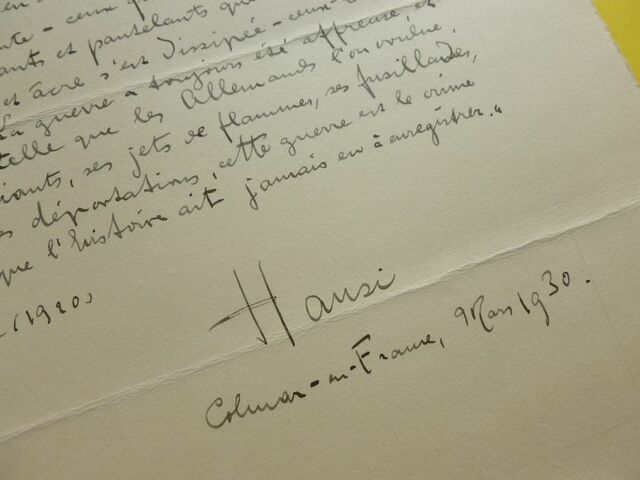 ante - ceux qu
ants et pantelants que
et âcre s'est dissipée - ceux-
La guerre a toujours été affreuse et
telle que les Allemands l'on voulue,
iants, ses jets de flammes, ses fusillades,
s déportations, cette guerre est le crime
que l'histoire ait jamais eu à enregistrer."
(1920)
Hansi
Colmar-en-France, 9 Mars 1930.